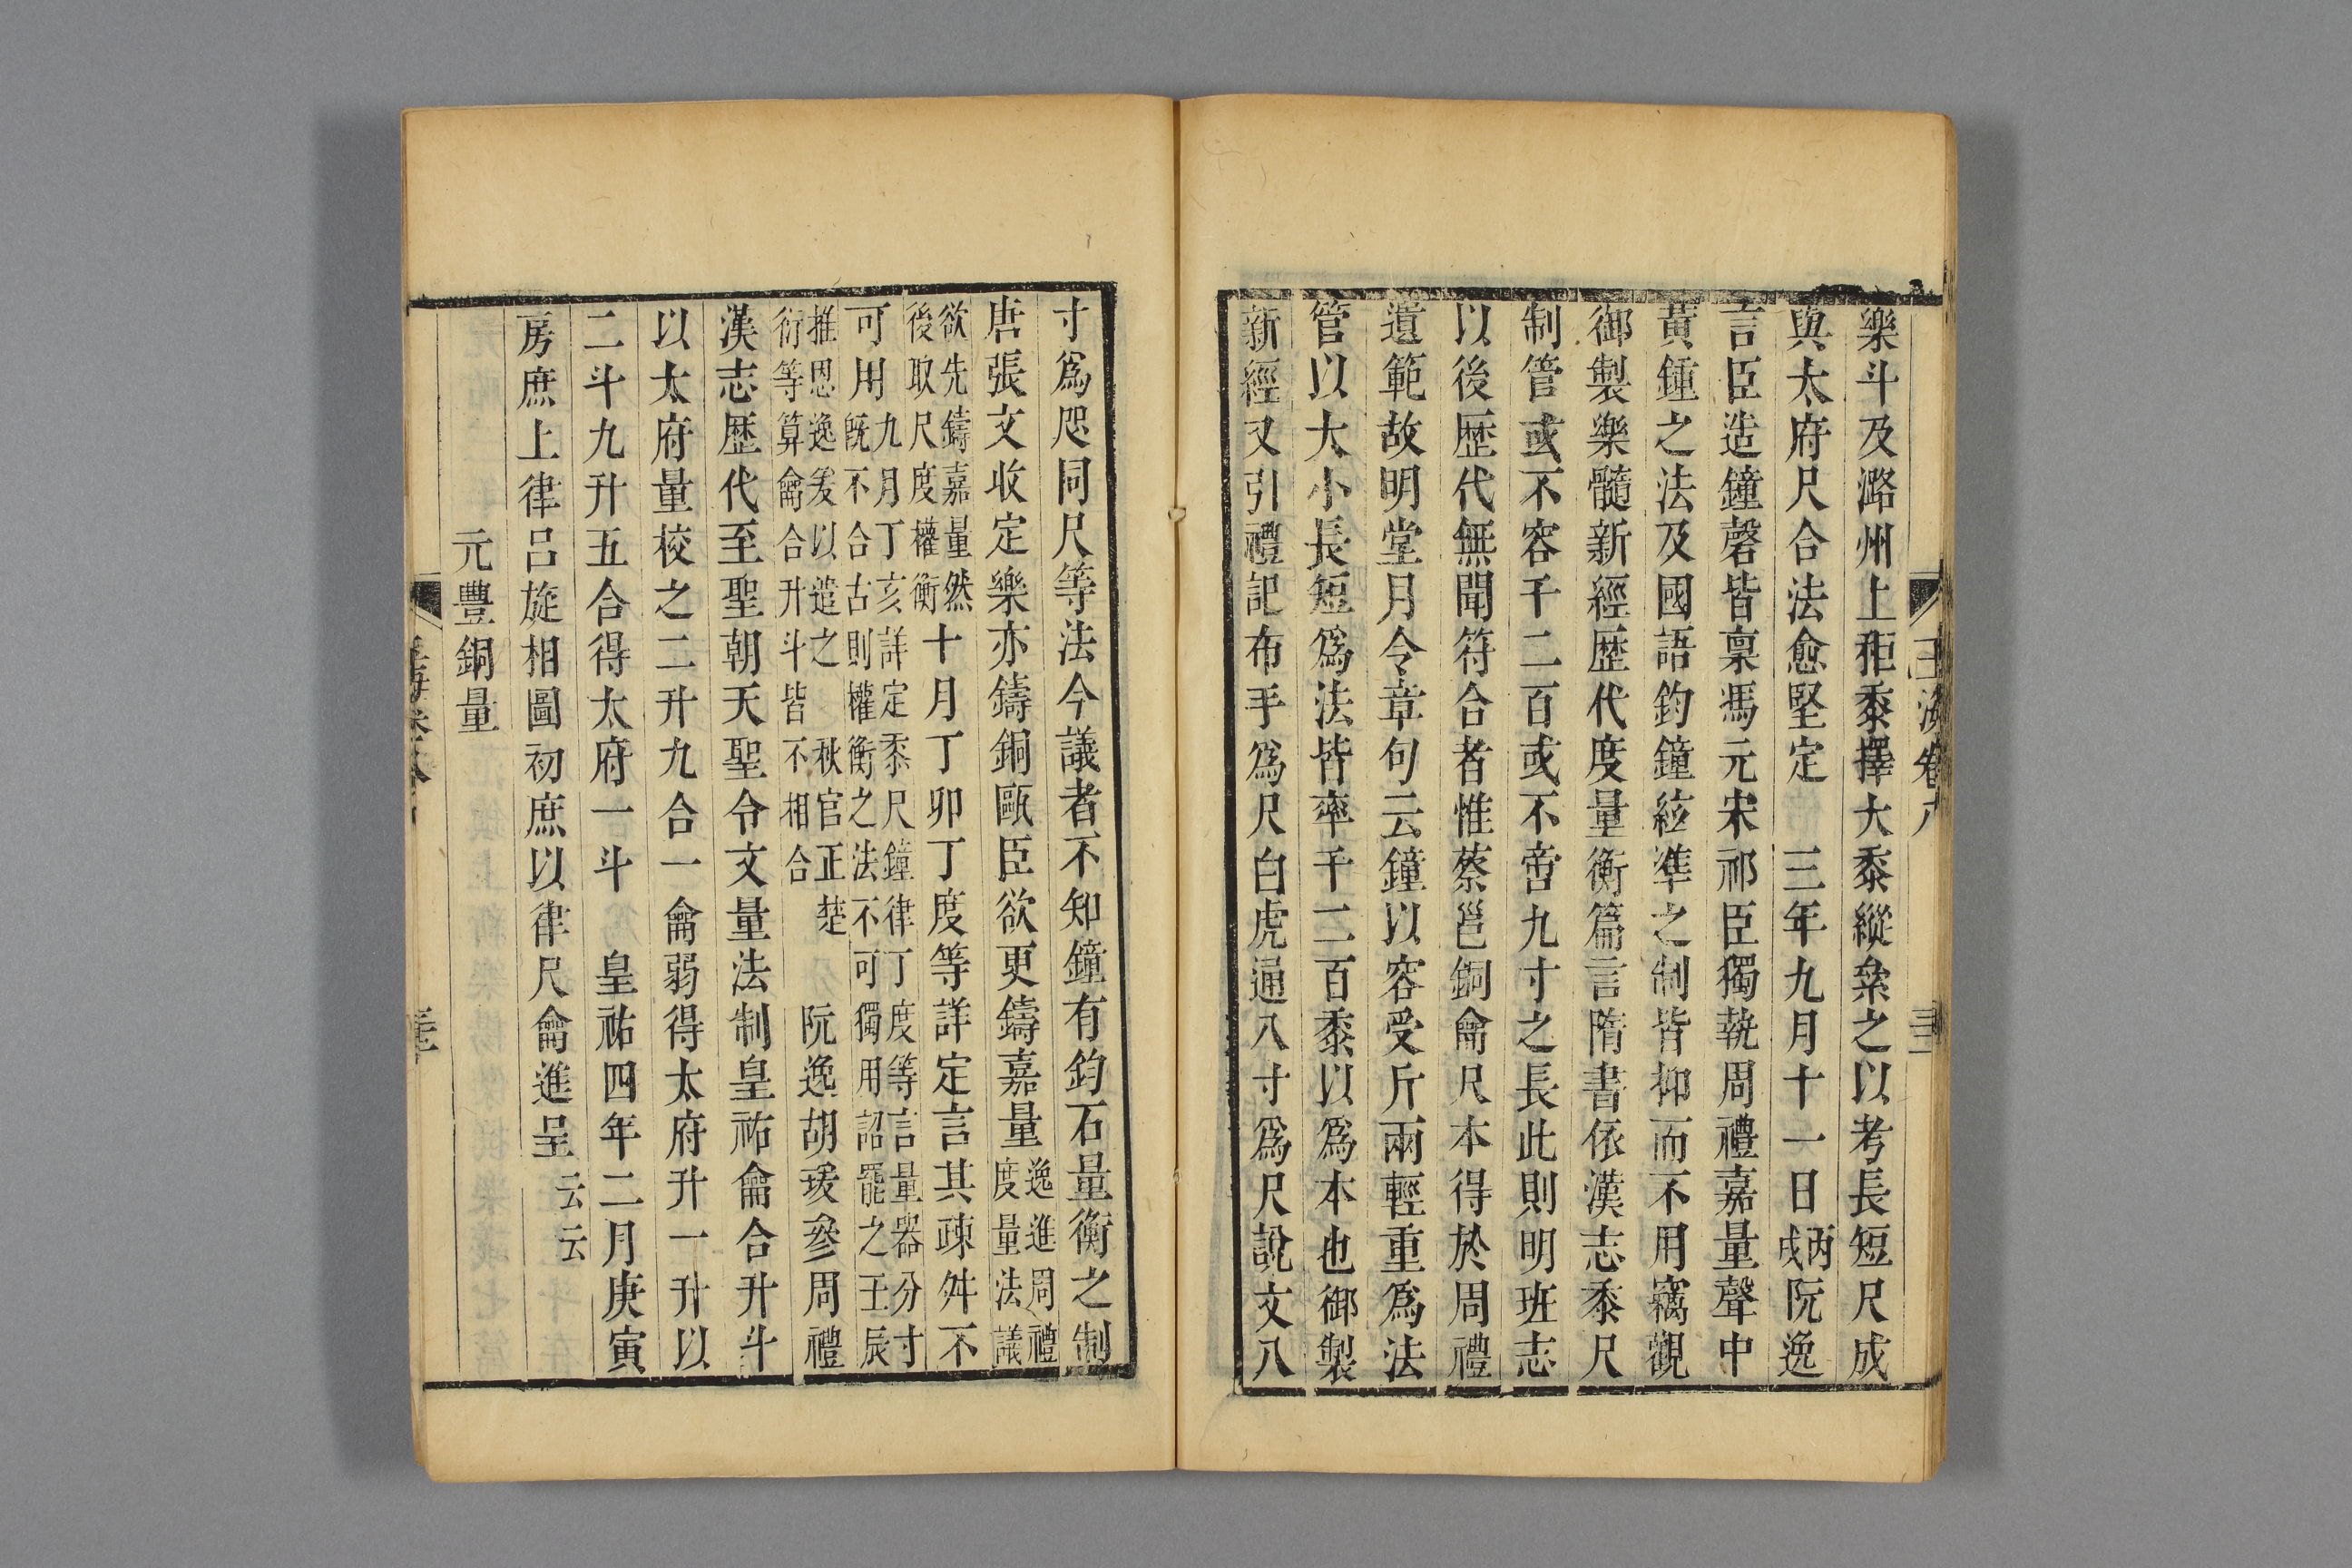 樂斗及潞州上秬黍擇大黍縱絫之以考長短尺成
與太府尺合法愈堅定 三年九月十一日丙戌阮逸
言臣造鐘磬皆稟馮元宋祁臣獨執周禮嘉量聲中
黃鍾之法及國語鈞鐘絃準之制皆抑而不用竊觀
御製樂髓新經歷代度量衡篇言隋書依漢志黍尺
制管或不容千二百或不啻九寸之長此則明班志
以後歷代無聞符合者惟蔡邕銅龠尺本得於周禮
遺範故明堂月令章句云鐘以容受斤兩輕重為法
管以大小長短為法皆率千二百黍以為本也御製
新經又引禮記布手為尺白虎通八寸為尺說文八
玉海卷八
寸為咫同尺等法今議者不知鐘有鈞石量衡之制
唐張文收定樂亦鑄銅甌臣欲更鑄嘉量逸進周禮度量法議
欲先鑄嘉量然後取尺度權衡十月丁卯丁度等詳定言其疎舛不
可用九月丁亥詳定黍尺鐘律丁度等言量器分寸既不合古則權衡之法不可獨用詔罷之壬辰
推恩逸瑗以遣之 秋官正楚衍等算龠合升斗皆不相合 阮逸胡瑗參周禮
漢志歷代至聖朝天聖令文量法制皇祐龠合升斗
以太府量校之二升九合一龠弱得太府升一升以
二斗九升五合得太府一斗 皇祐四年二月庚寅
房庶上律呂旋相圖初庶以律尺龠進呈云云
元豐銅量